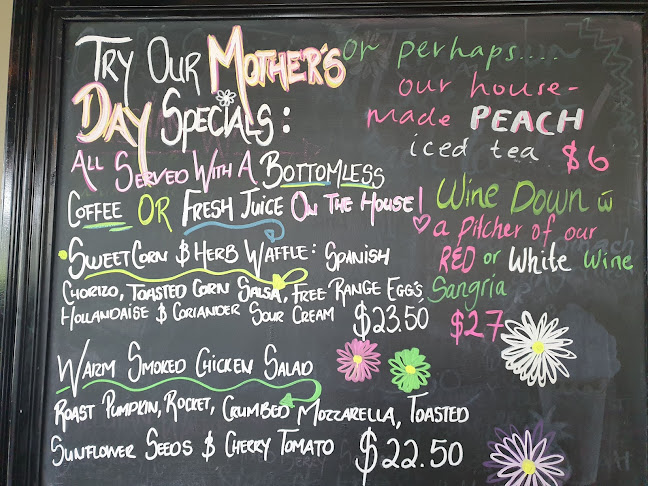 TRY OUR MOTHER'S
DAY SPECIALS:
ALL SERVED WITH A BOTTOMLESS
COFFEE OR FRESH JUICE ON THE HOUSE!
SWEETCORN $ HERB WAFFLE: SPANISH
CHORIZO, TOASTED CORN SALSA, FREE RANGE EGG'S
HOLLANDAISE $ CORIANDER SOUR CREAM $23.50
WARM SMOKED CHICKEN SALAD
ROAST PUMPKIN, ROCKET, CRUMBED MOZZARELLA, TOASTED
SUNFLOWER SEEDS $ CHERRY TOMATO $22.50
or perhaps....
our house-
made PEACH
iced tea $6
Wine Down
a pitcher of our
RED or White wine
Sangria
$27